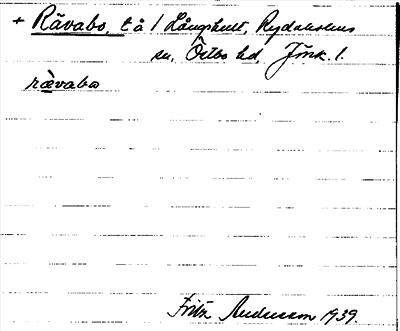 + Rävabo, t å 1 Långhult, Rydaholms
sn, Östbo hd, Jönk. l.
rävabo
Fritz Andersson 1939.